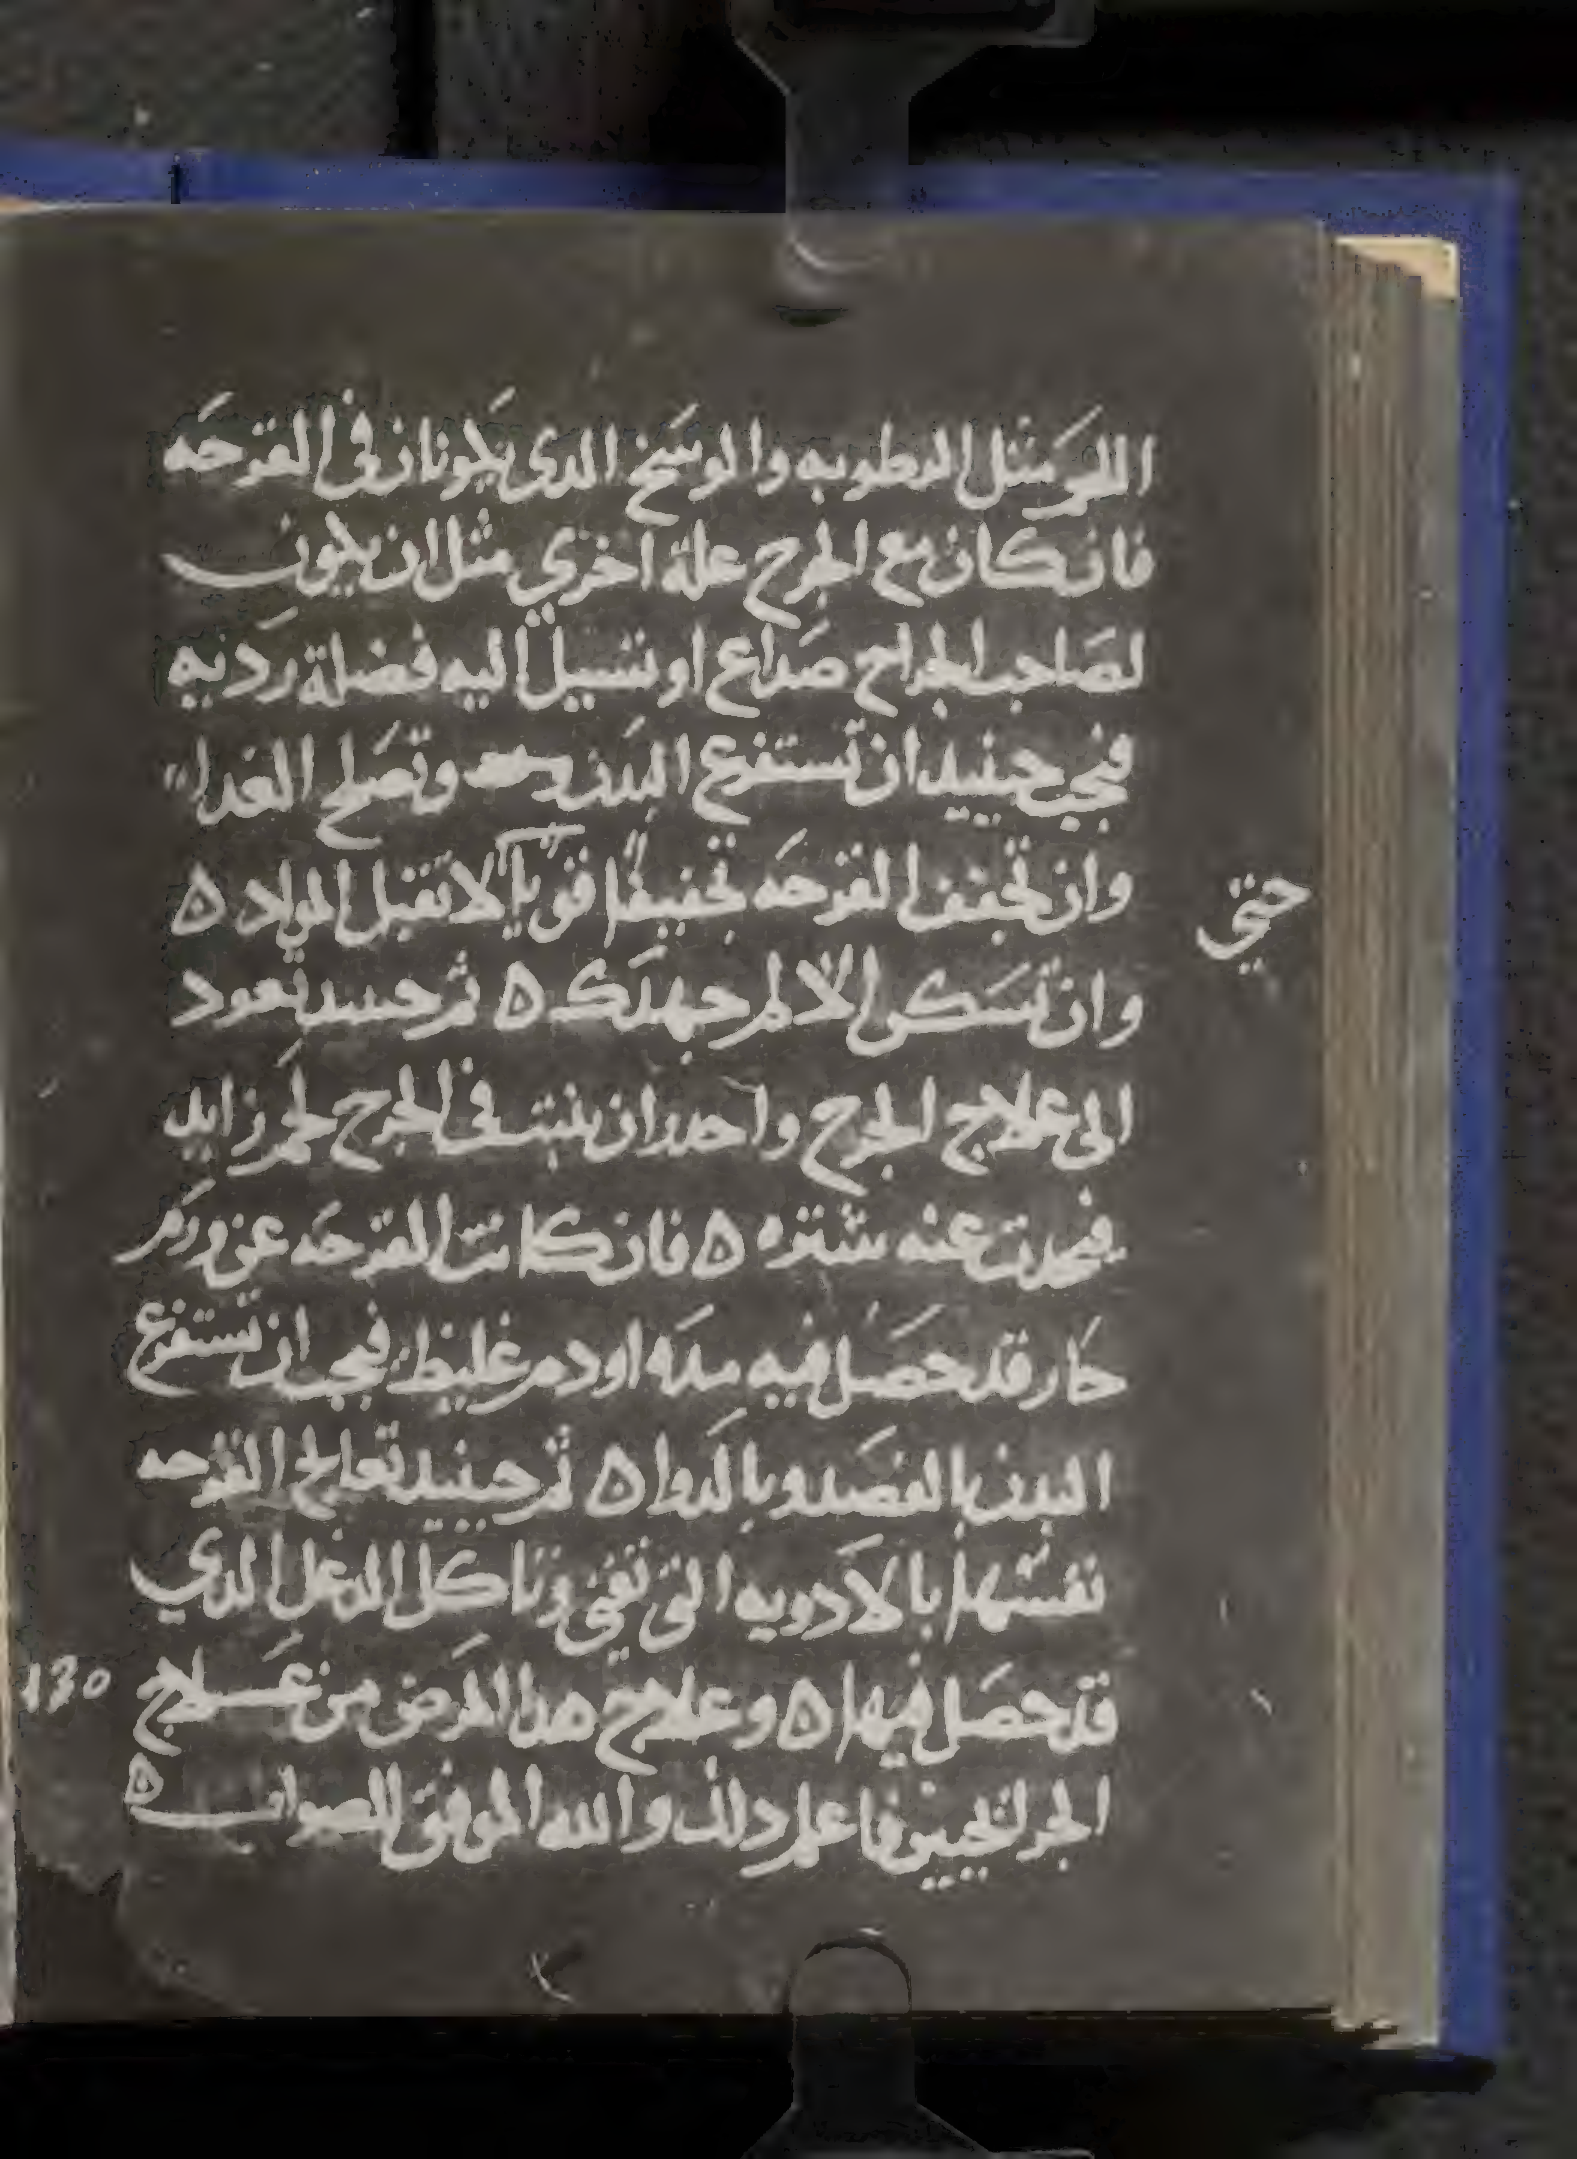 اللحم مثل الرطوبه والوسخ الدى يكونان فى القرحه
فان كان مع الجرح عله اخري مثل ان يكون
لصاحب الجراح صداع او تسيل اليه فضلة رديه
فيجب حينيد ان تستفرغ البدن وتصلح الغدا
وان تجفف القرحه تجفيفا قويا لا تقبل المواد ه
حتي
وان تسكن الالم جهدك ه ثم حينيد تعود
الى علاج الجرح واحدر ان ينبت فى الجرح لحم زايد
فيحدث عنه شتره ه فان كانت القرحه عن ورم
كان قد حصل فيه مده او دم غليظ فيجب ان تستفرغ
البدن بالفصد وبالدوا ه ثم حينيد تعالج القرحه
نفسها بالادويه التى تنقي وتاكل الدغل الدي
قد حصل فيها ه وعلاج هدا المرض من علاج
130
الجرائحيين فاعلم دلك والله الموفق للصواب ه